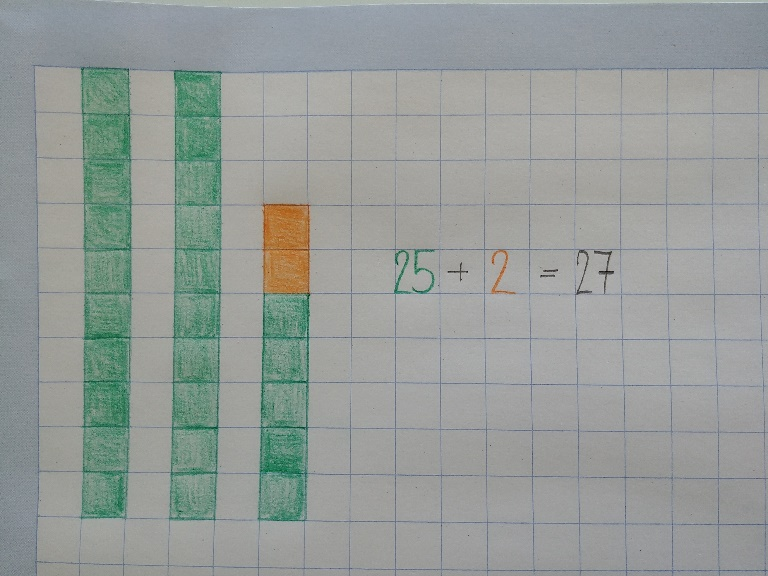 25 + 2 = 27